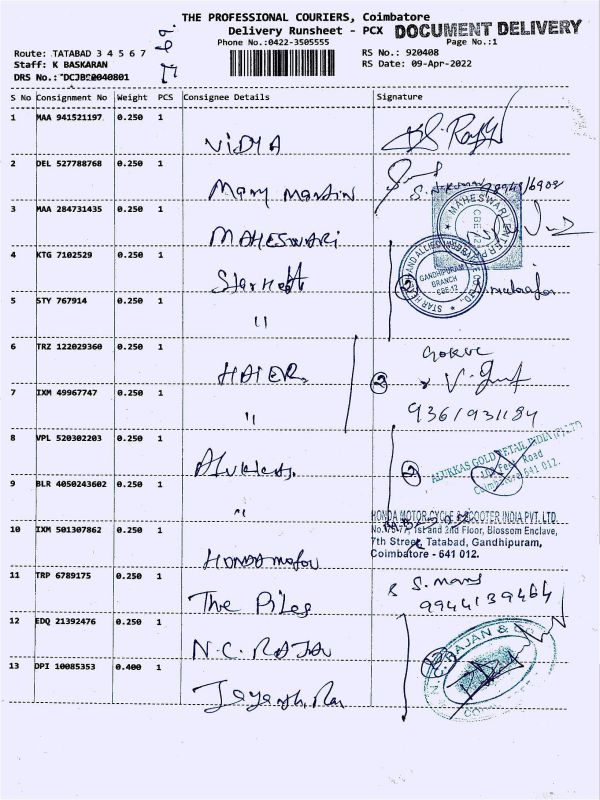 THE PROFESSIONAL COURIERS, Coimbatore
Delivery Runsheet - PCX DOCUMENT DELIVERY
Phone No.:0422-3505555 Page No.:1
Route: TATABAD 3 4 5 6 7 RS No.: 920408
Staff: K BASKARAN RS Date: 09-Apr-2022
DRS No.:
S No Consignment No Weight PCS Consignee Details Signature
1 MAA 941521197 0.250 1
VIDYA
2 DEL 527788768 0.250 1
Mary Martin
3 MAA 284731435 0.250 1
MAHESWARI
MAHESWARI
CBE-12
4 KTG 7102529 0.250 1
Star Helt
GANDHIPURAM
BRANCH
CBE-12
5 STY 767914 0.250 1
"
6 TRZ 122029360 0.250 1
HAIER
7 IXM 49967747 0.250 1
"
9361931184
8 VPL 520302203 0.250 1
ALUKKAS GOLD RETAIL INDIA (P) LTD
Road
641 012.
9 BLR 4050243602 0.250 1
"
HONDA MOTOR CYCLE & SCOOTER INDIA PVT. LTD.
1st and 2nd Floor, Blossom Enclave,
7th Street, Tatabad, Gandhipuram,
Coimbatore - 641 012.
10 IXM 501307862 0.250 1
HONDA motor
11 TRP 6789175 0.250 1
The Piles
9944139464
12 EDQ 21392476 0.250 1
N.C. RAJAN
N.C. RAJAN &
13 DPI 10085353 0.400 1